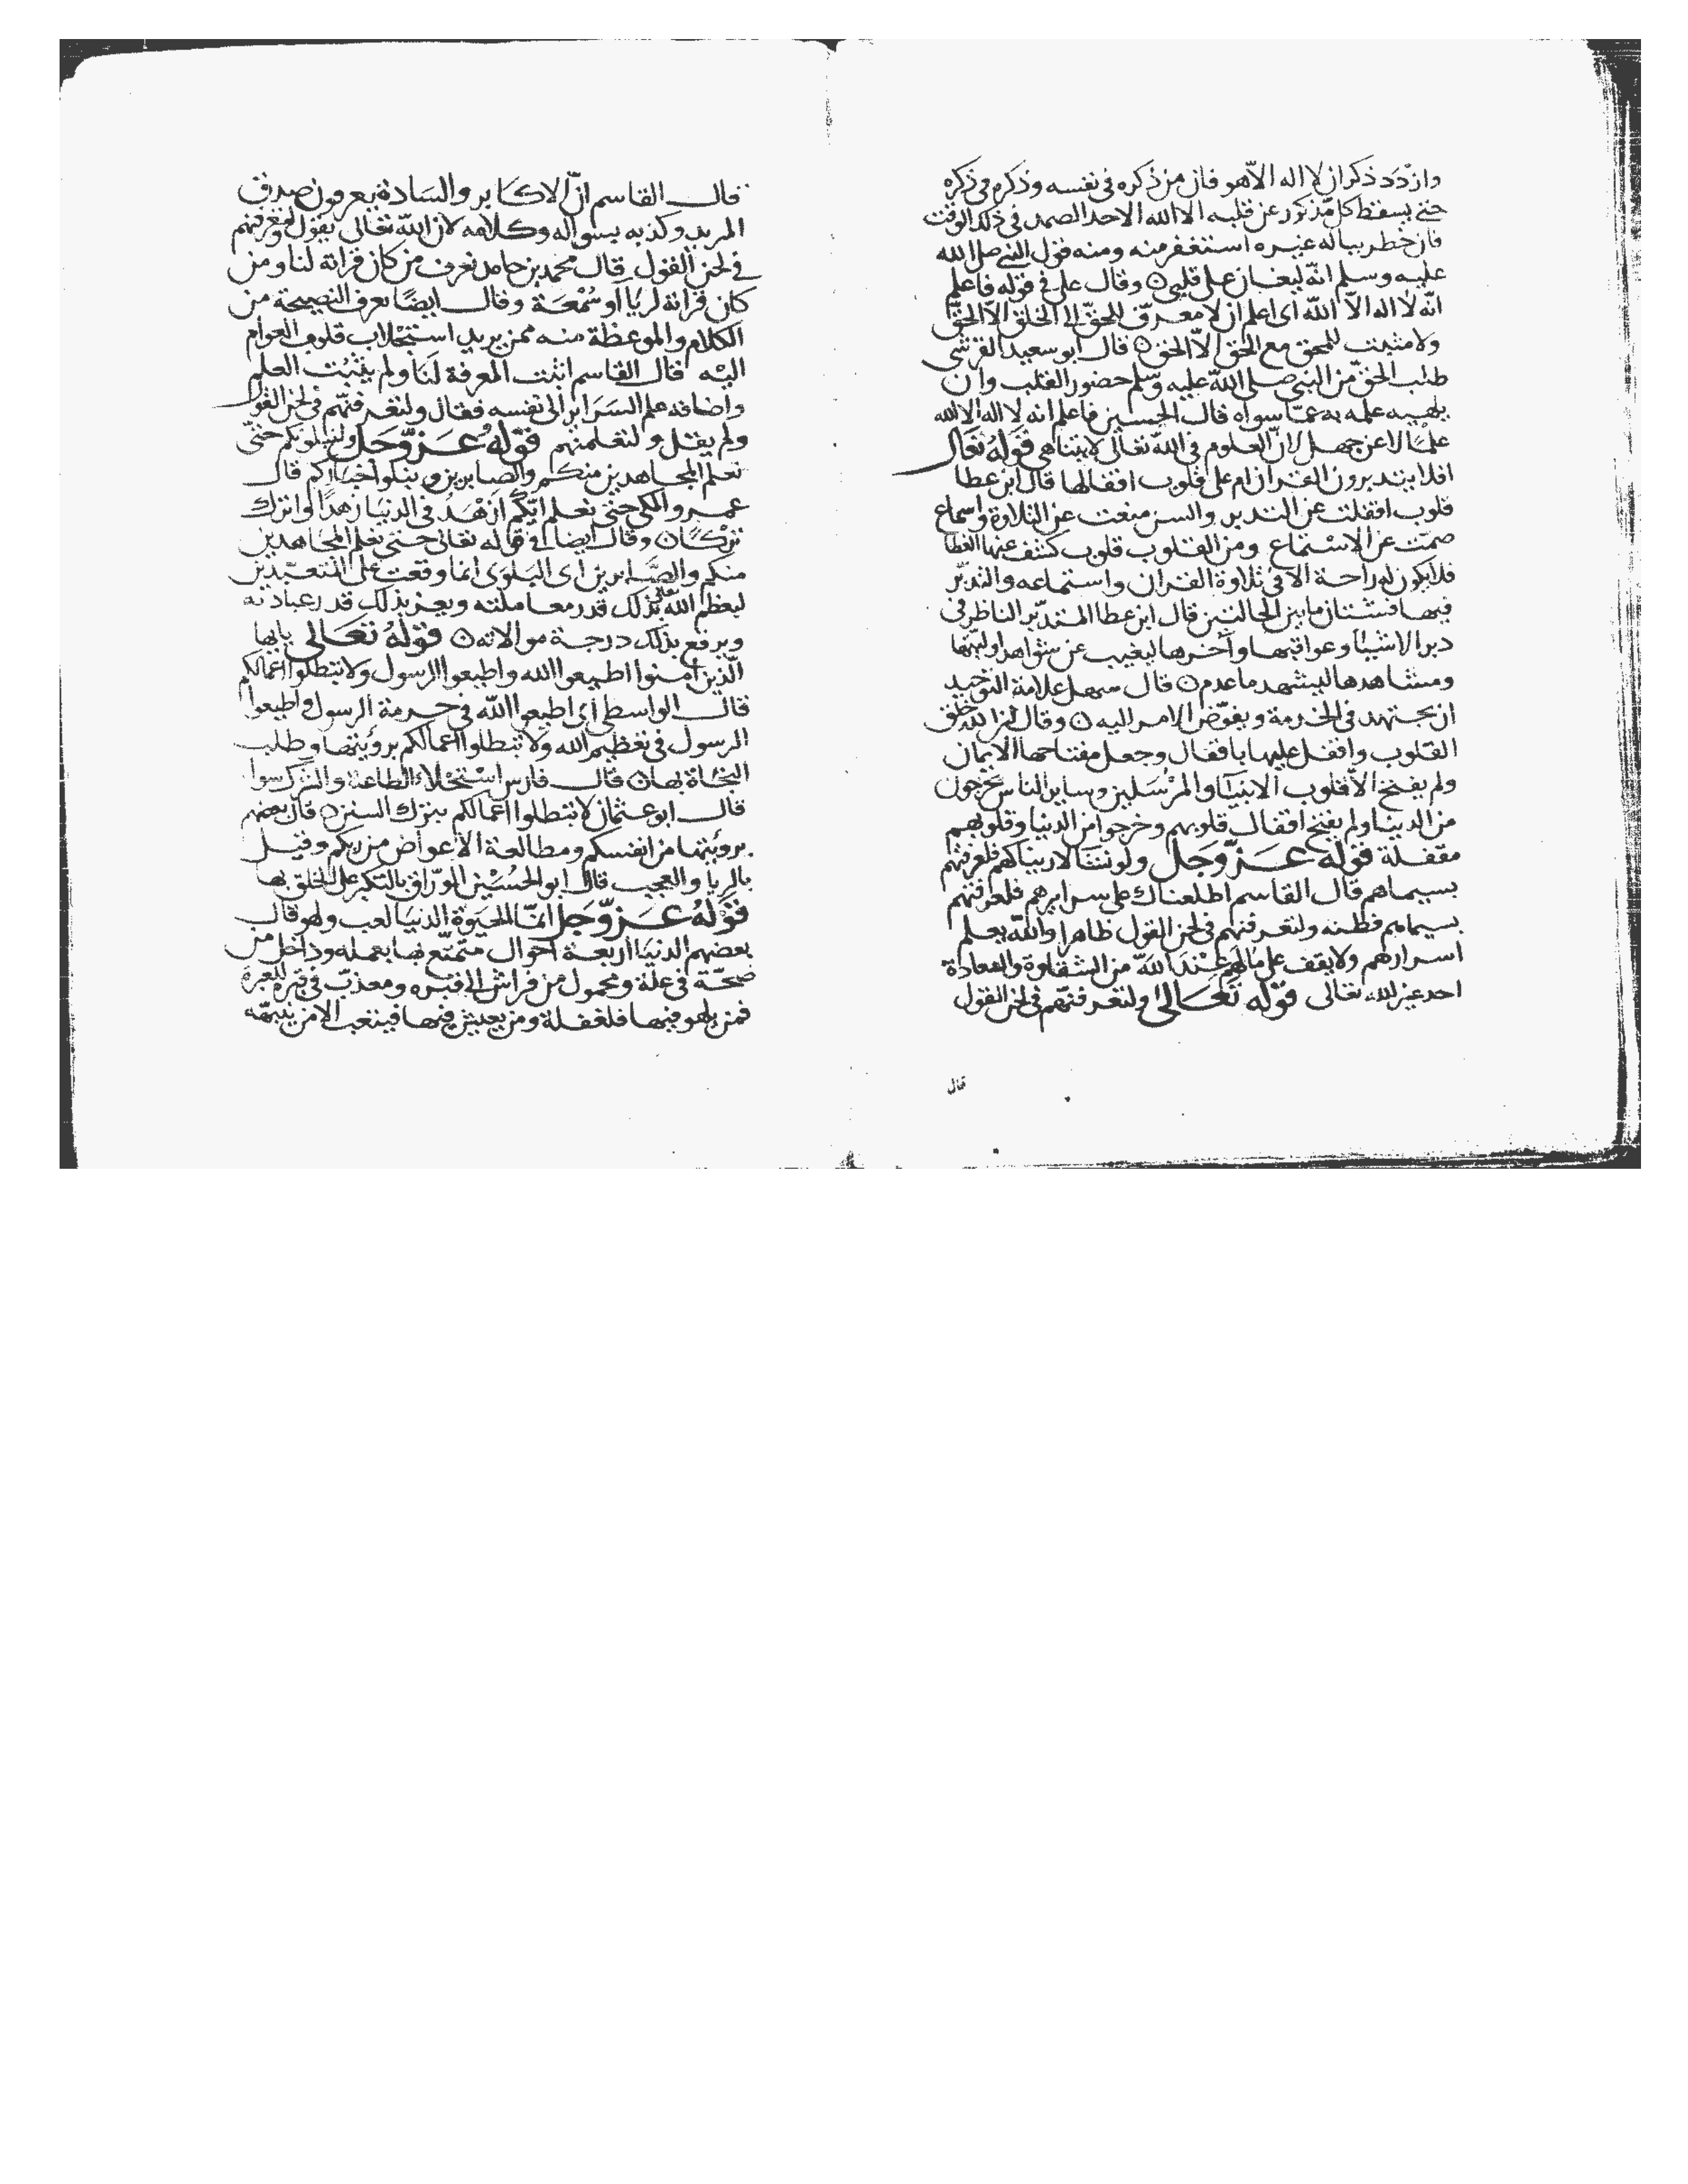 وازدد ذكرا ان لا اله الا هو فان من ذكره فى نفسه وذكرم فى ذكره
حتى يسقط كل مذكور عن قلبه الا الله الاحد الصمد فى ذلك الوقت
فان خطر بباله غيره استغفر منه ومنه قول النبى صلى الله
عليه وسلم انه ليغان على قلبى ن وقال على فى قوله فاعلم
انه لا اله الا الله اى اعلم ان لا معرف للحق الى الخلق الا الحق
ولا مثبت للمحق مع الحق الا الحق ن قال ابو سعيد القرشى
طلب الحق من النبى صلى الله عليه وسلم حضور القلب وان
يلهيه علمه به عما سواه قال الحسين فاعلم انه لا اله الا الله
علما لا عن جهل لان العلوم فى الله تعالى لا يتناهى قوله تعالى
افلا يتدبرون القرآن ام على قلوب اقفالها قال ابن عطا
قلوب اقفلت عن التدبر والسن منعت عن التلاوة واسماع
صمت عن الاستماع ومن القلوب قلوب كشف عنها الغطا
فلا يكون له راحة الا فى تلاوة القران واستماعه والتدبر
فيها فشتان ما بين الحالتين قال ابن عطا المتدبر الناظر فى
دبر الاشيا وعواقبها وآخرها ليغيب عن شواهد اوليتها
ومشاهدها ليشهد ما عدم ن قال سهل علامة التوحيد
ان يجتهد فى الخدمة ويفوض الامر اليه ن وقال ان الله خلق
القلوب واقفل عليها باقفال وجعل مفتاحها الايمان
ولم يفتح الا قلوب الانبيا والمرسلين وساير الناس يخرجون
من الدنيا ولم يفتح اقفال قلوبهم وخرجوا من الدنيا وقلوبهم
مقفلة قوله عز وجل ولو نشا لاريناكهم فلعرفتهم
بسيماهم قال القاسم اطلعناك على سرايرهم فلعرفتهم
بسيماهم فطنه ولتعرفنهم فى لحن القول ظاهرا والله يعلم
اسرارهم ولا يقف على ما لهم عند الله من الشقاوة والسعادة
احد غير الله تعالى قوله تعالى ولتعرفنهم فى لحن القول
قال
قال القاسم ان الاكابر والسادة يعرفون صدق
المريد وكذبه بسواله وكلامه لان الله تعالى يقول ولتعرفنهم
فى لحن القول قال محمد بن حامد تعرف من كان قرانه لنا ومن
كان قرانه لريا او سمعة وقال ايضا تعرف النصيحة من
الكلام والموعظة منه ممن يريد استجلاب قلوب العوام
اليه قال القاسم اثبت المعرفة لنا ولم يثبت العلم
واضافه علم السراير الى نفسه فقال ولتعرفنهم فى لحن القول
ولم يقل ولتعلمنهم قوله عز وجل ولنبلونكم حتى
نعلم المجاهدين منكم والصابرين ونبلوا اخباركم قال
عمرو المكى حتى نعلم ايكم ازهد فى الدنيا زهدا لو اترك
تركا ن وقال ايضا فى قوله تعالى حتى نعلم المجاهدين
منكم والصابرين اى البلوى انما وقعت على المتعبدين
ليعظم الله تعالى بذلك قدر معاملته ويعز بذلك قدر عبادته
ويرفع بذلك درجة موالاته ن قوله تعالى يايها
الذين امنوا اطيعوا الله واطيعوا الرسول ولا تبطلوا اعمالكم
قال الواسطى اى اطيعوا الله فى حرمة الرسول واطيعوا
الرسول فى تعظيم الله ولا تبطلوا اعمالكم برؤيتها وطلب
النجاة بها ن قال فارس استحلاء الطاعة والشرك سوا
قال ابو عثمان لا تبطلوا اعمالكم بترك السنن ن قال بعضهم
برؤيتها من انفسكم ومطالعة الاعواض من ربكم وقيل
بالريا والعجب قال ابو الحسين الوراق بالتكبر على الخلق بها
قوله عز وجل انما الحيوة الدنيا لعب ولهو قال
بعضهم الدنيا اربعة احوال متمتع بها بعمله وداخل من
صحة فى علة ومحمول من فراش الى قبره ومعذب فى قبره للعبرة
فمن يلهو فيها فلغفلة ومن يعيش فيها فيتعب الا من تيممه